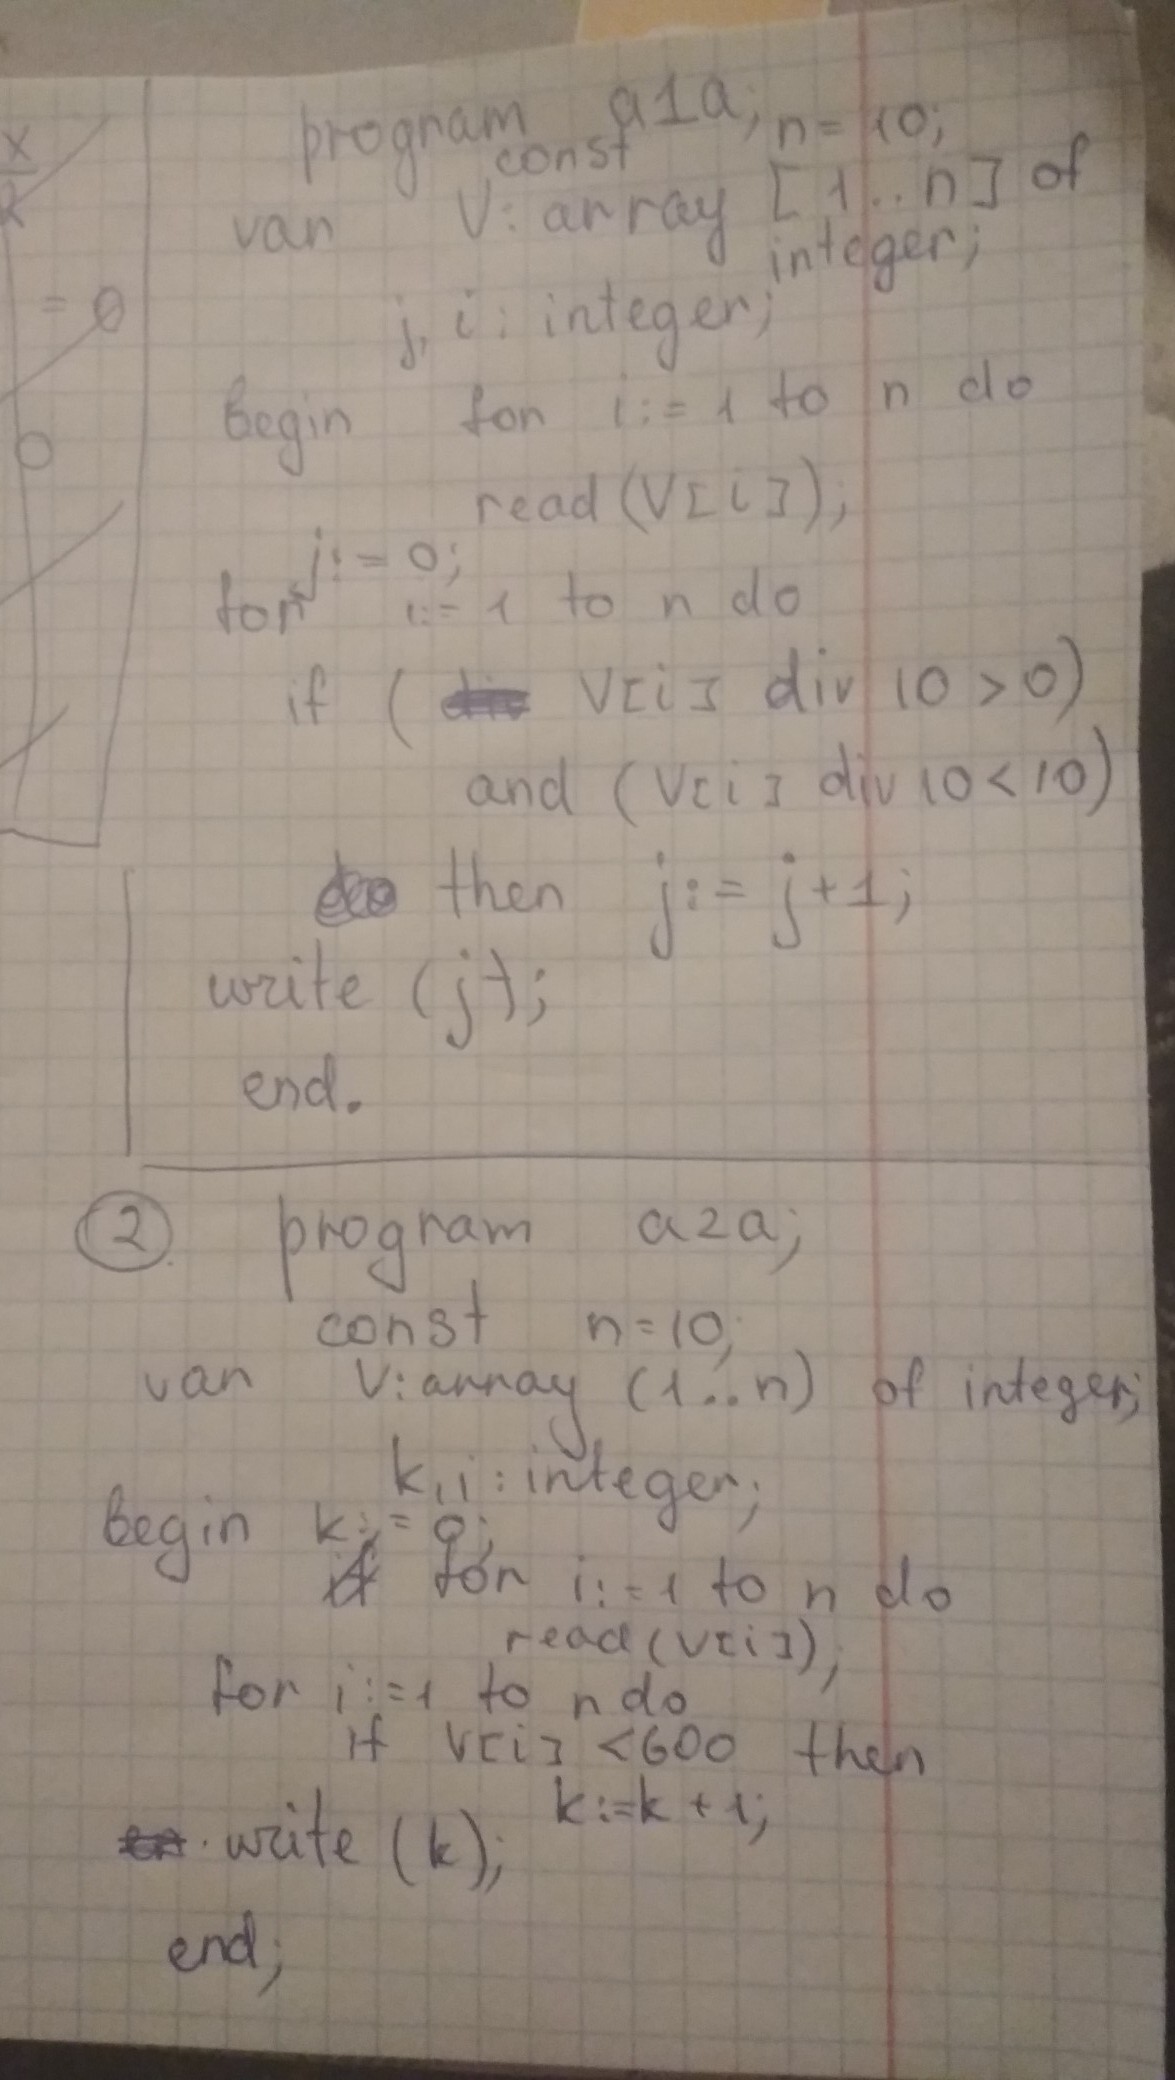 x
= 0
0
program a1a;
const n = 10;
var V: array [1..n] of
integer;
j, i: integer;
Begin for i:=1 to n do
read (V[i]);
j:=0;
for i:=1 to n do
if ( V[i] div 10 > 0)
and (V[i] div 10 < 10)
then j:= j+1;
write (j);
end.
2 program a2a;
const n=10;
var V: array (1..n) of integer;
k, i: integer;
Begin k:=0;
for i:=1 to n do
read (v[i]);
for i:=1 to n do
if V[i] <600 then
k:=k+1;
write (k);
end;